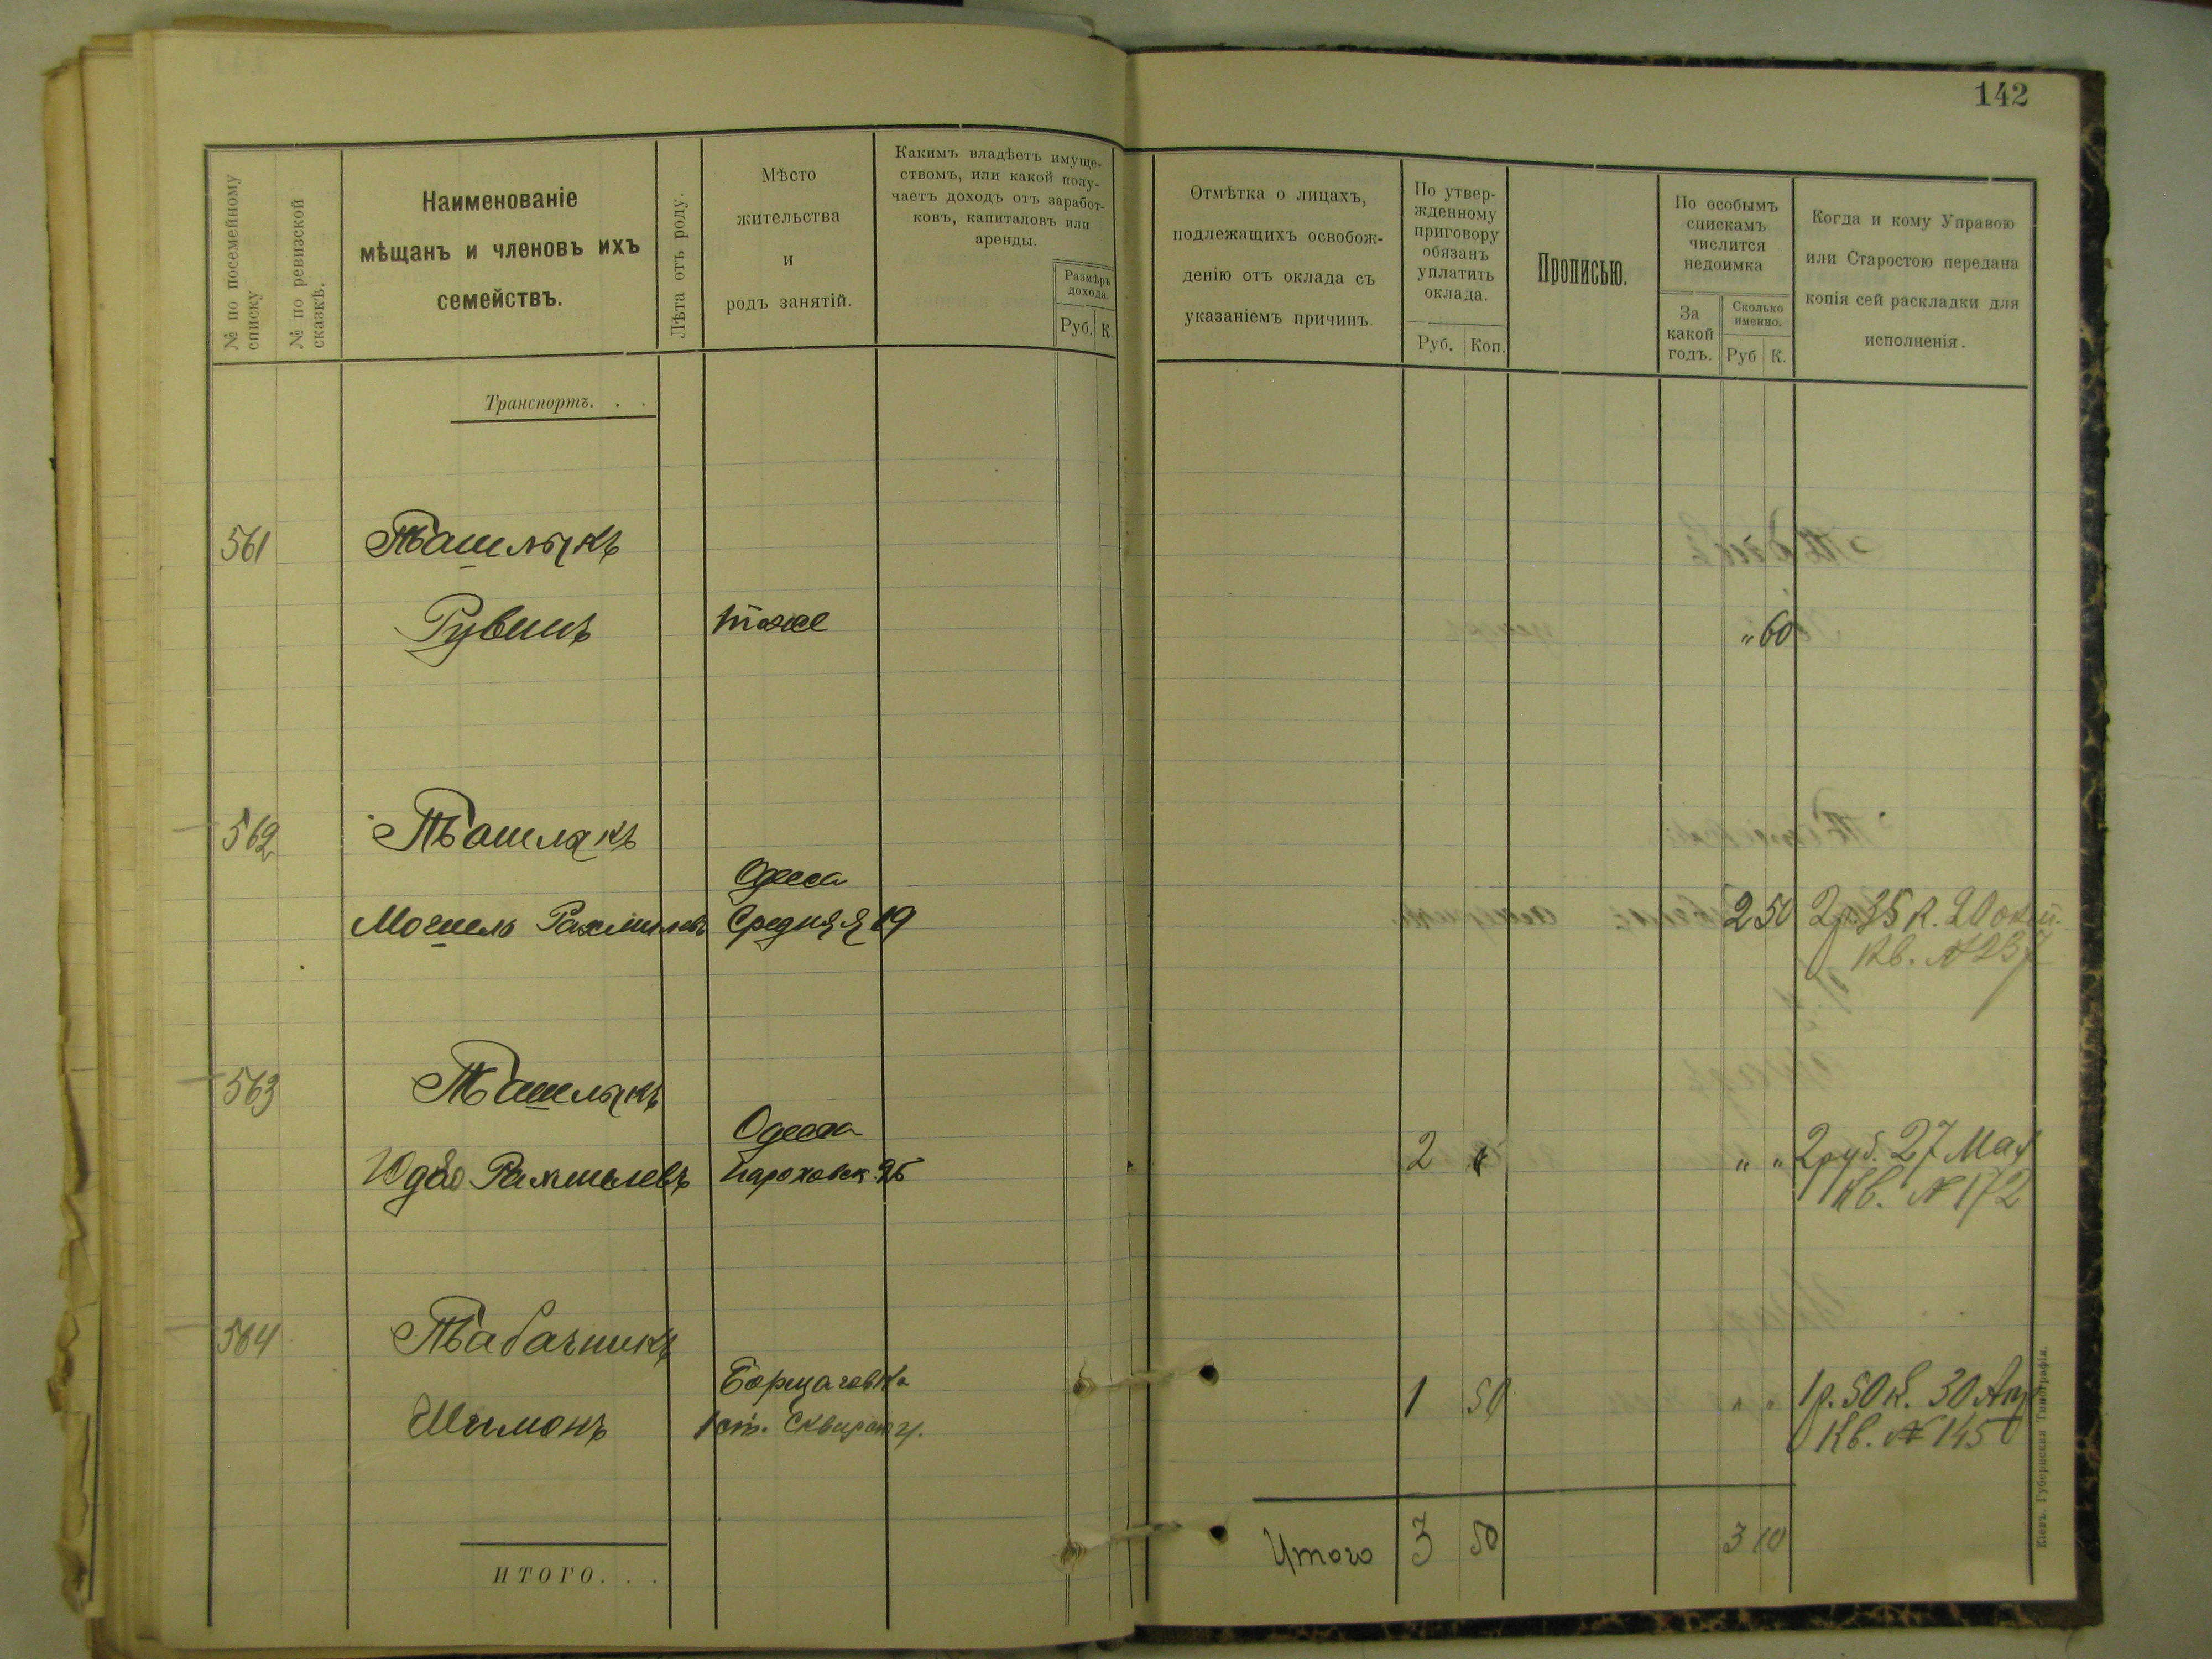 142
№ по посемейному списку
№ по ревизской сказкѣ.
Наименованіе
мѣщанъ и членовъ ихъ
семействъ.
Лѣта отъ роду.
Мѣсто
жительства
и
родъ занятій.
Какимъ владѣетъ имуще-
ствомъ, или какой полу-
чаетъ доходъ отъ заработ-
ковъ, капиталовъ или
аренды.
Размѣръ
дохода.
Руб. К.
Отмѣтка о лицахъ,
подлежащихъ освобож-
денію отъ оклада съ
указаніемъ причинъ.
По утвер-
жденному
приговору
обязанъ
уплатить
оклада.
Руб. Коп.
Прописью.
По особымъ
спискамъ
числится
недоимка
За
какой
годъ.
Сколько
именно.
Руб К.
Когда и кому Управою
или Старостою передана
копія сей раскладки для
исполненія.
Транспортъ. . .
561 Ташлыкъ
Рувинъ тоже „ 60
562 Ташлыкъ
Одесса
Мошель Рахмилевъ Средняя 19 2 50 2р 35 к. 20
Кв. № 237
563 Ташлыкъ
Одесса
Рахмилевъ 2 „ „ „ 2 руб. 27 Мая
Кв. № 172
564 Табачникъ
Борщаговка
Шимонъ 1 ст. Сквирск у. 1 50 „ „ 1 р. 50 к. 30 Апр
Кв. № 145
ИТОГО. . .
Итого 3 50 3 10
Кіевъ. Губернская Типографія.